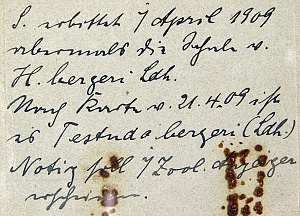 S. erbittet 7 April 1909
abermals die Schale v.
H. bergeri Ldh.
Nach Karte v. 21.4.09 ist
es Testudo bergeri (Ldh.)
Notiz soll i/ Zool. Anzeiger
erscheinen.